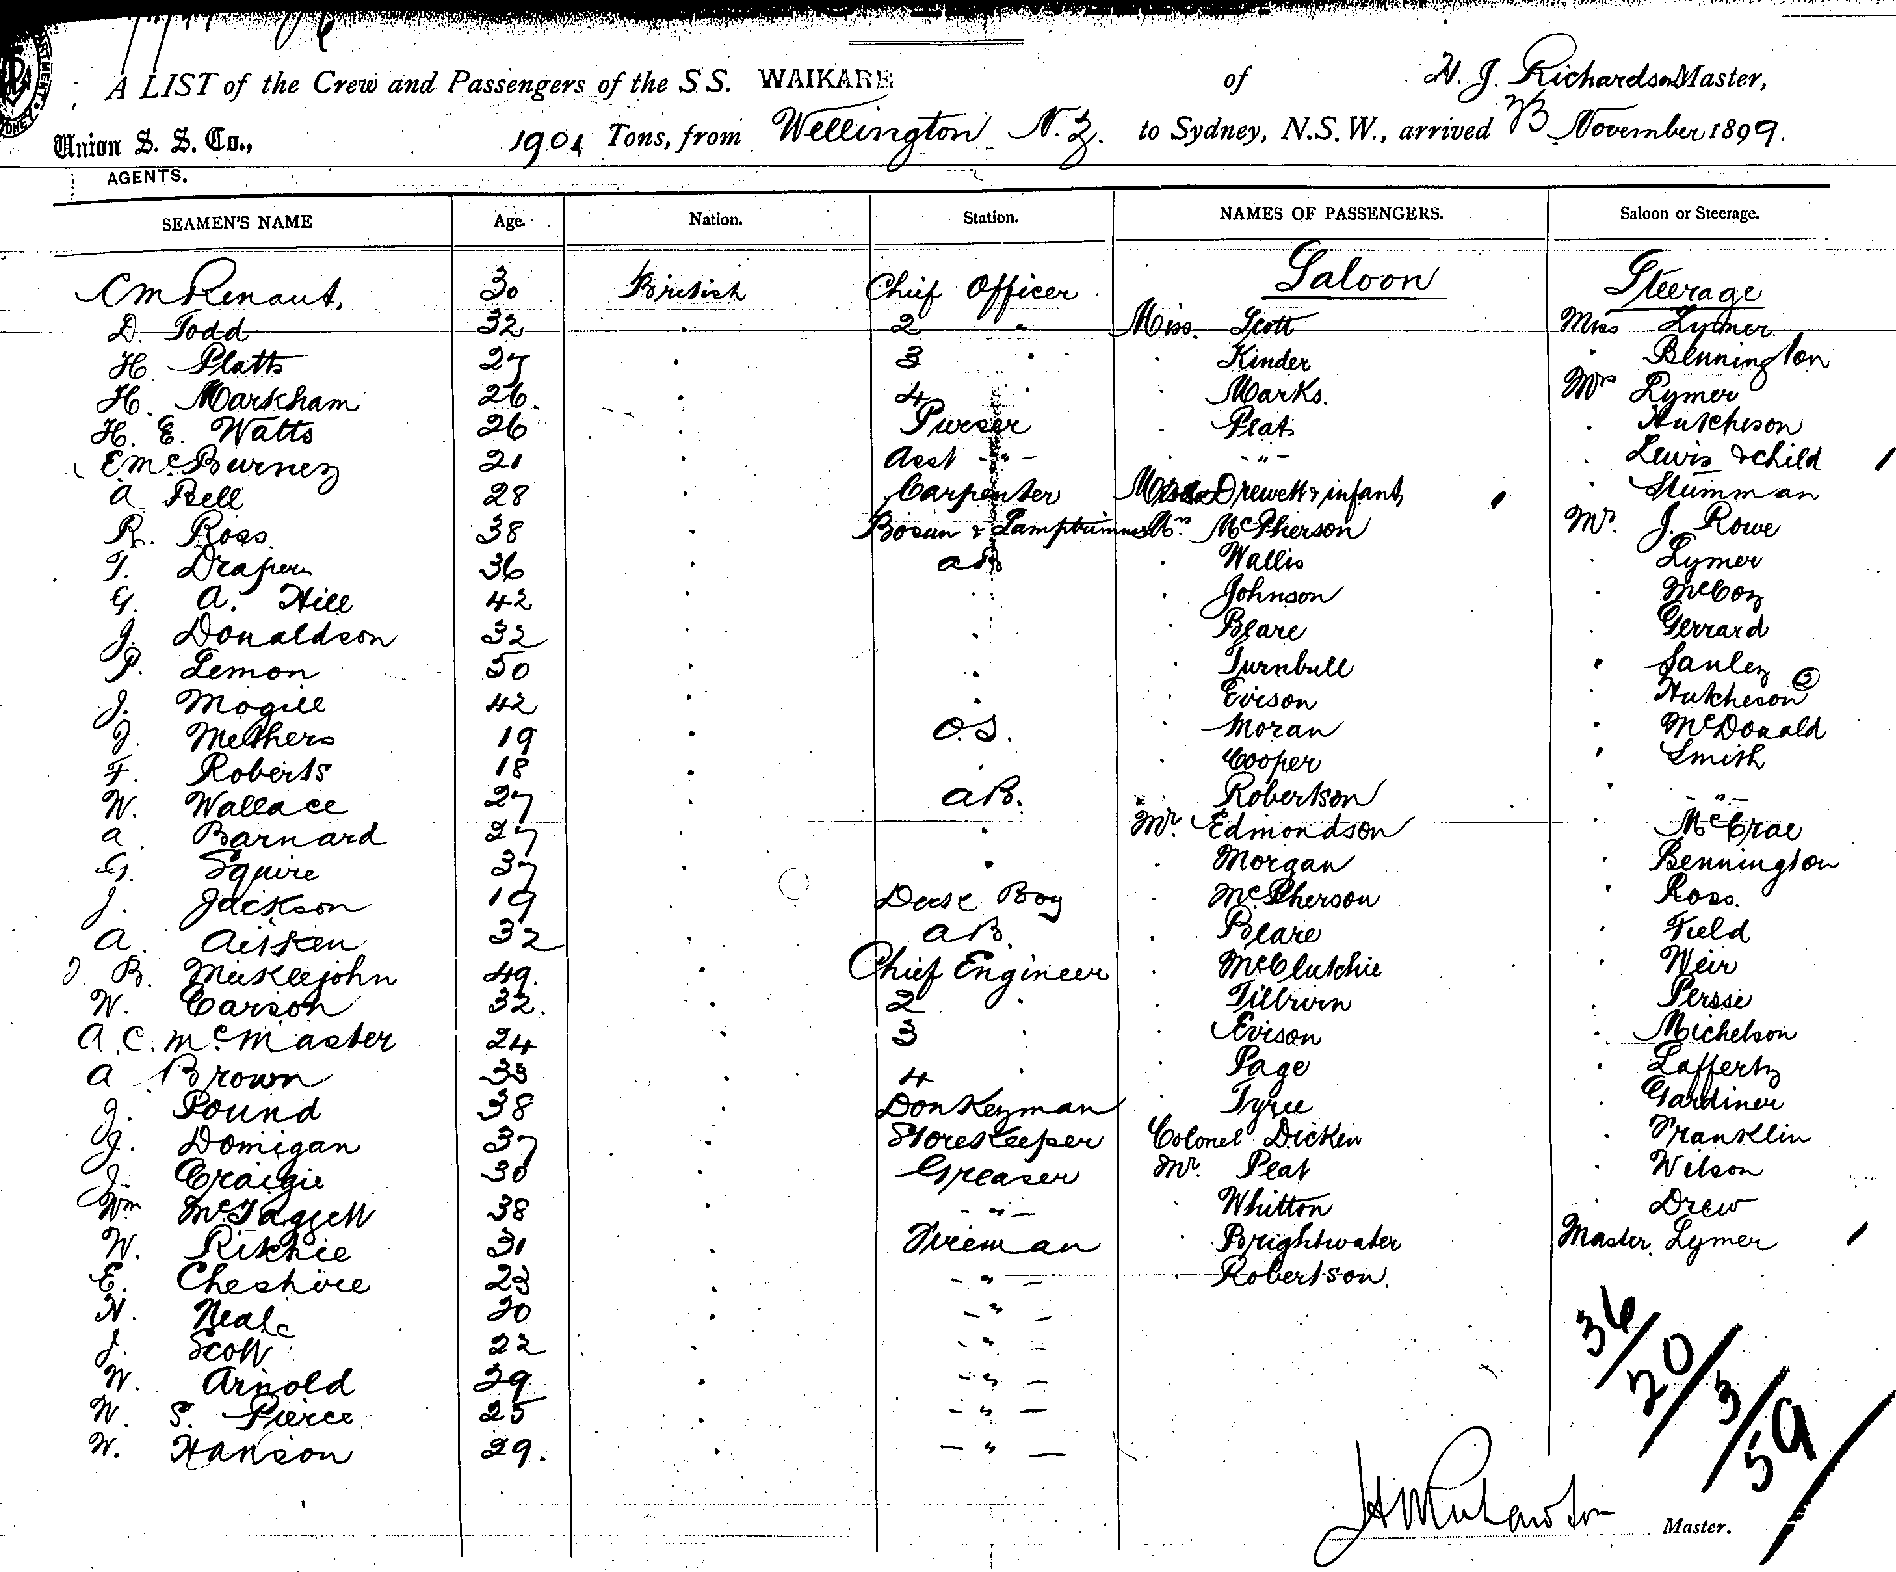 A LIST of the Crew and Passengers of the S.S. WAIKARE of H. J. Richardson Master,
Union S. S. Co., 1901 Tons, from Wellington N.Z. to Sydney, N.S.W., arrived November 1899.
AGENTS.
SEAMEN'S NAME Age. Nation. Station. NAMES OF PASSENGERS. Saloon or Steerage.
C M Renaut, 30 British Chief Officer Saloon Steerage
D. Todd 32 " 2 " Miss. Scott Miss Lymer
H. Platts 27 " 3 " " Kinder " Bennington
H. Markham 26. " 4 " Marks. Mrs Lymer
H. E. Watts 26 " Purser " Peat " Hutcheson
E McBurney 21 " Asst - " - " - " - " Lewis & child
A Bell 28 " Carpenter Drewett & infant " Stumman
R. Ross 38 " Bosun & Lamptrimmer Mrs. McPherson Mr. J. Rowe
T. Draper 36 " AB " Wallis " Lymer
G. A. Hill 42 " " " Johnson " McCoy
J. Donaldson 32 " " " Beare " Gerrard
P. Lemon 50 " " " Turnbull " Sanley
J. Mogill 42 " " " Evison " Hutcheson (2)
J. Methers 19 " O.S. " Moran " McDonald
F. Roberts 18 " " " Cooper " Smith
W. Wallace 27 " AB. " Robertson " - " -
A. Barnard 27 " " Mr. Edmondson " McCrae
G. Squire 37 " " " Morgan " Bennington
J. Jackson 19 " Deck Boy " McPherson " Ross.
A. Aitken 32 " AB. " Beare " Field
J B. Meiklejohn 49. " Chief Engineer " McClutchie " Weir
W. Carson 32. " 2 " " Tilburn " Persse
A. C. McMaster 24 " 3 " " Evison " Michelson
A Brown 33 " 4 " Page " Lafferty
J. Pound 38 " Donkeyman " Tyree " Gardiner
J. Domigan 37 " Storekeeper Colonel Dicken " Franklin
J. Craigie 30 " Greaser Mr. Peat " Wilson
Wm McTaggett 38 " - " - " Whitton " Drew
W. Ritchie 31 " Fireman " Brightwater Master. Lymer
E. Cheshire 23 " - " - " Robertson.
N. Neale 20 " - " -
J. Scott 22 " - " -
W. Arnold 29 " - " -
W. S. Pierce 25 " - " -
W. Hanson 29. " - " -
36/20/3/59/
Master.